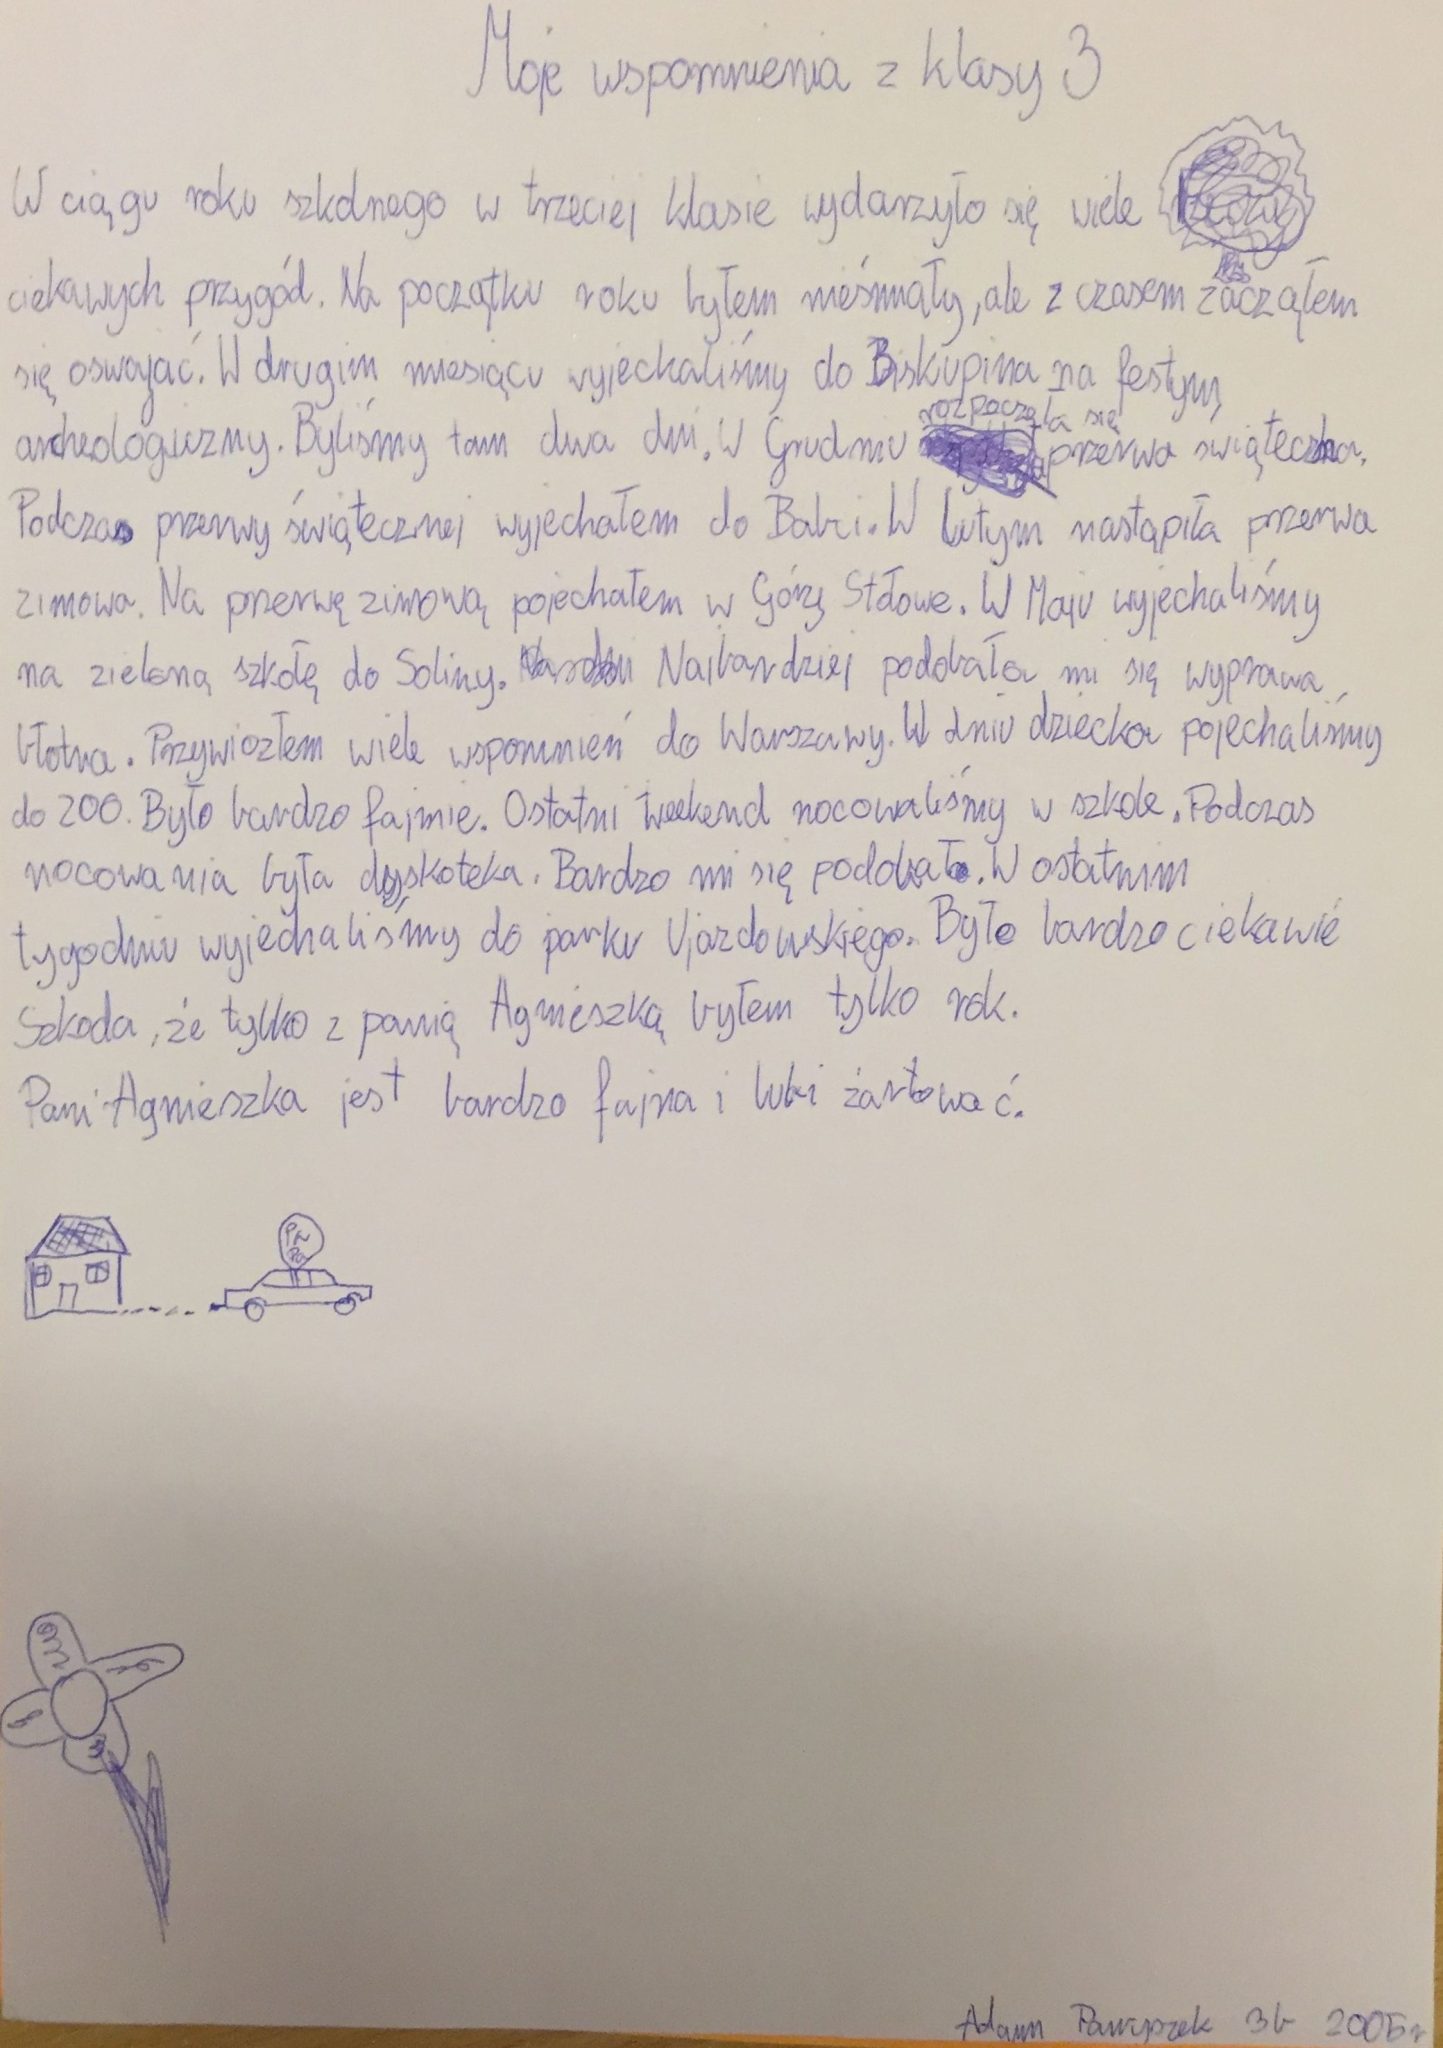 Moje wspomnienia z klasy 3
W ciągu roku szkolnego w trzeciej klasie wydarzyło się wiele
ciekawych przygód. Na początku roku byłem nieśmiały, ale z czasem zacząłem
się oswajać. W drugim miesiącu wyjechaliśmy do Biskupina na festyn
archeologiczny. Byliśmy tam dwa dni. W Grudniu rozpoczęła się przerwa świąteczna.
Podczas przerwy świątecznej wyjechałem do Babci. W lutym nastąpiła przerwa
zimowa. Na przerwę zimową pojechałem w Góry Stołowe. W Maju wyjechaliśmy
na zieloną szkołę do Soliny. Najbardziej podobała mi się wyprawa
błotna. Przywiozłem wiele wspomnień do Warszawy. W dniu dziecka pojechaliśmy
do ZOO. Było bardzo fajnie. Ostatni weekend nocowaliśmy w szkole. Podczas
nocowania była dyskoteka. Bardzo mi się podobało. W ostatnim
tygodniu wyjechaliśmy do parku Ujazdowskiego. Było bardzo ciekawie
Szkoda, że tylko z panią Agnieszką byłem tylko rok.
Pani Agnieszka jest bardzo fajna i lubi żartować.
Pa
Pa
Adam 3b 2005r